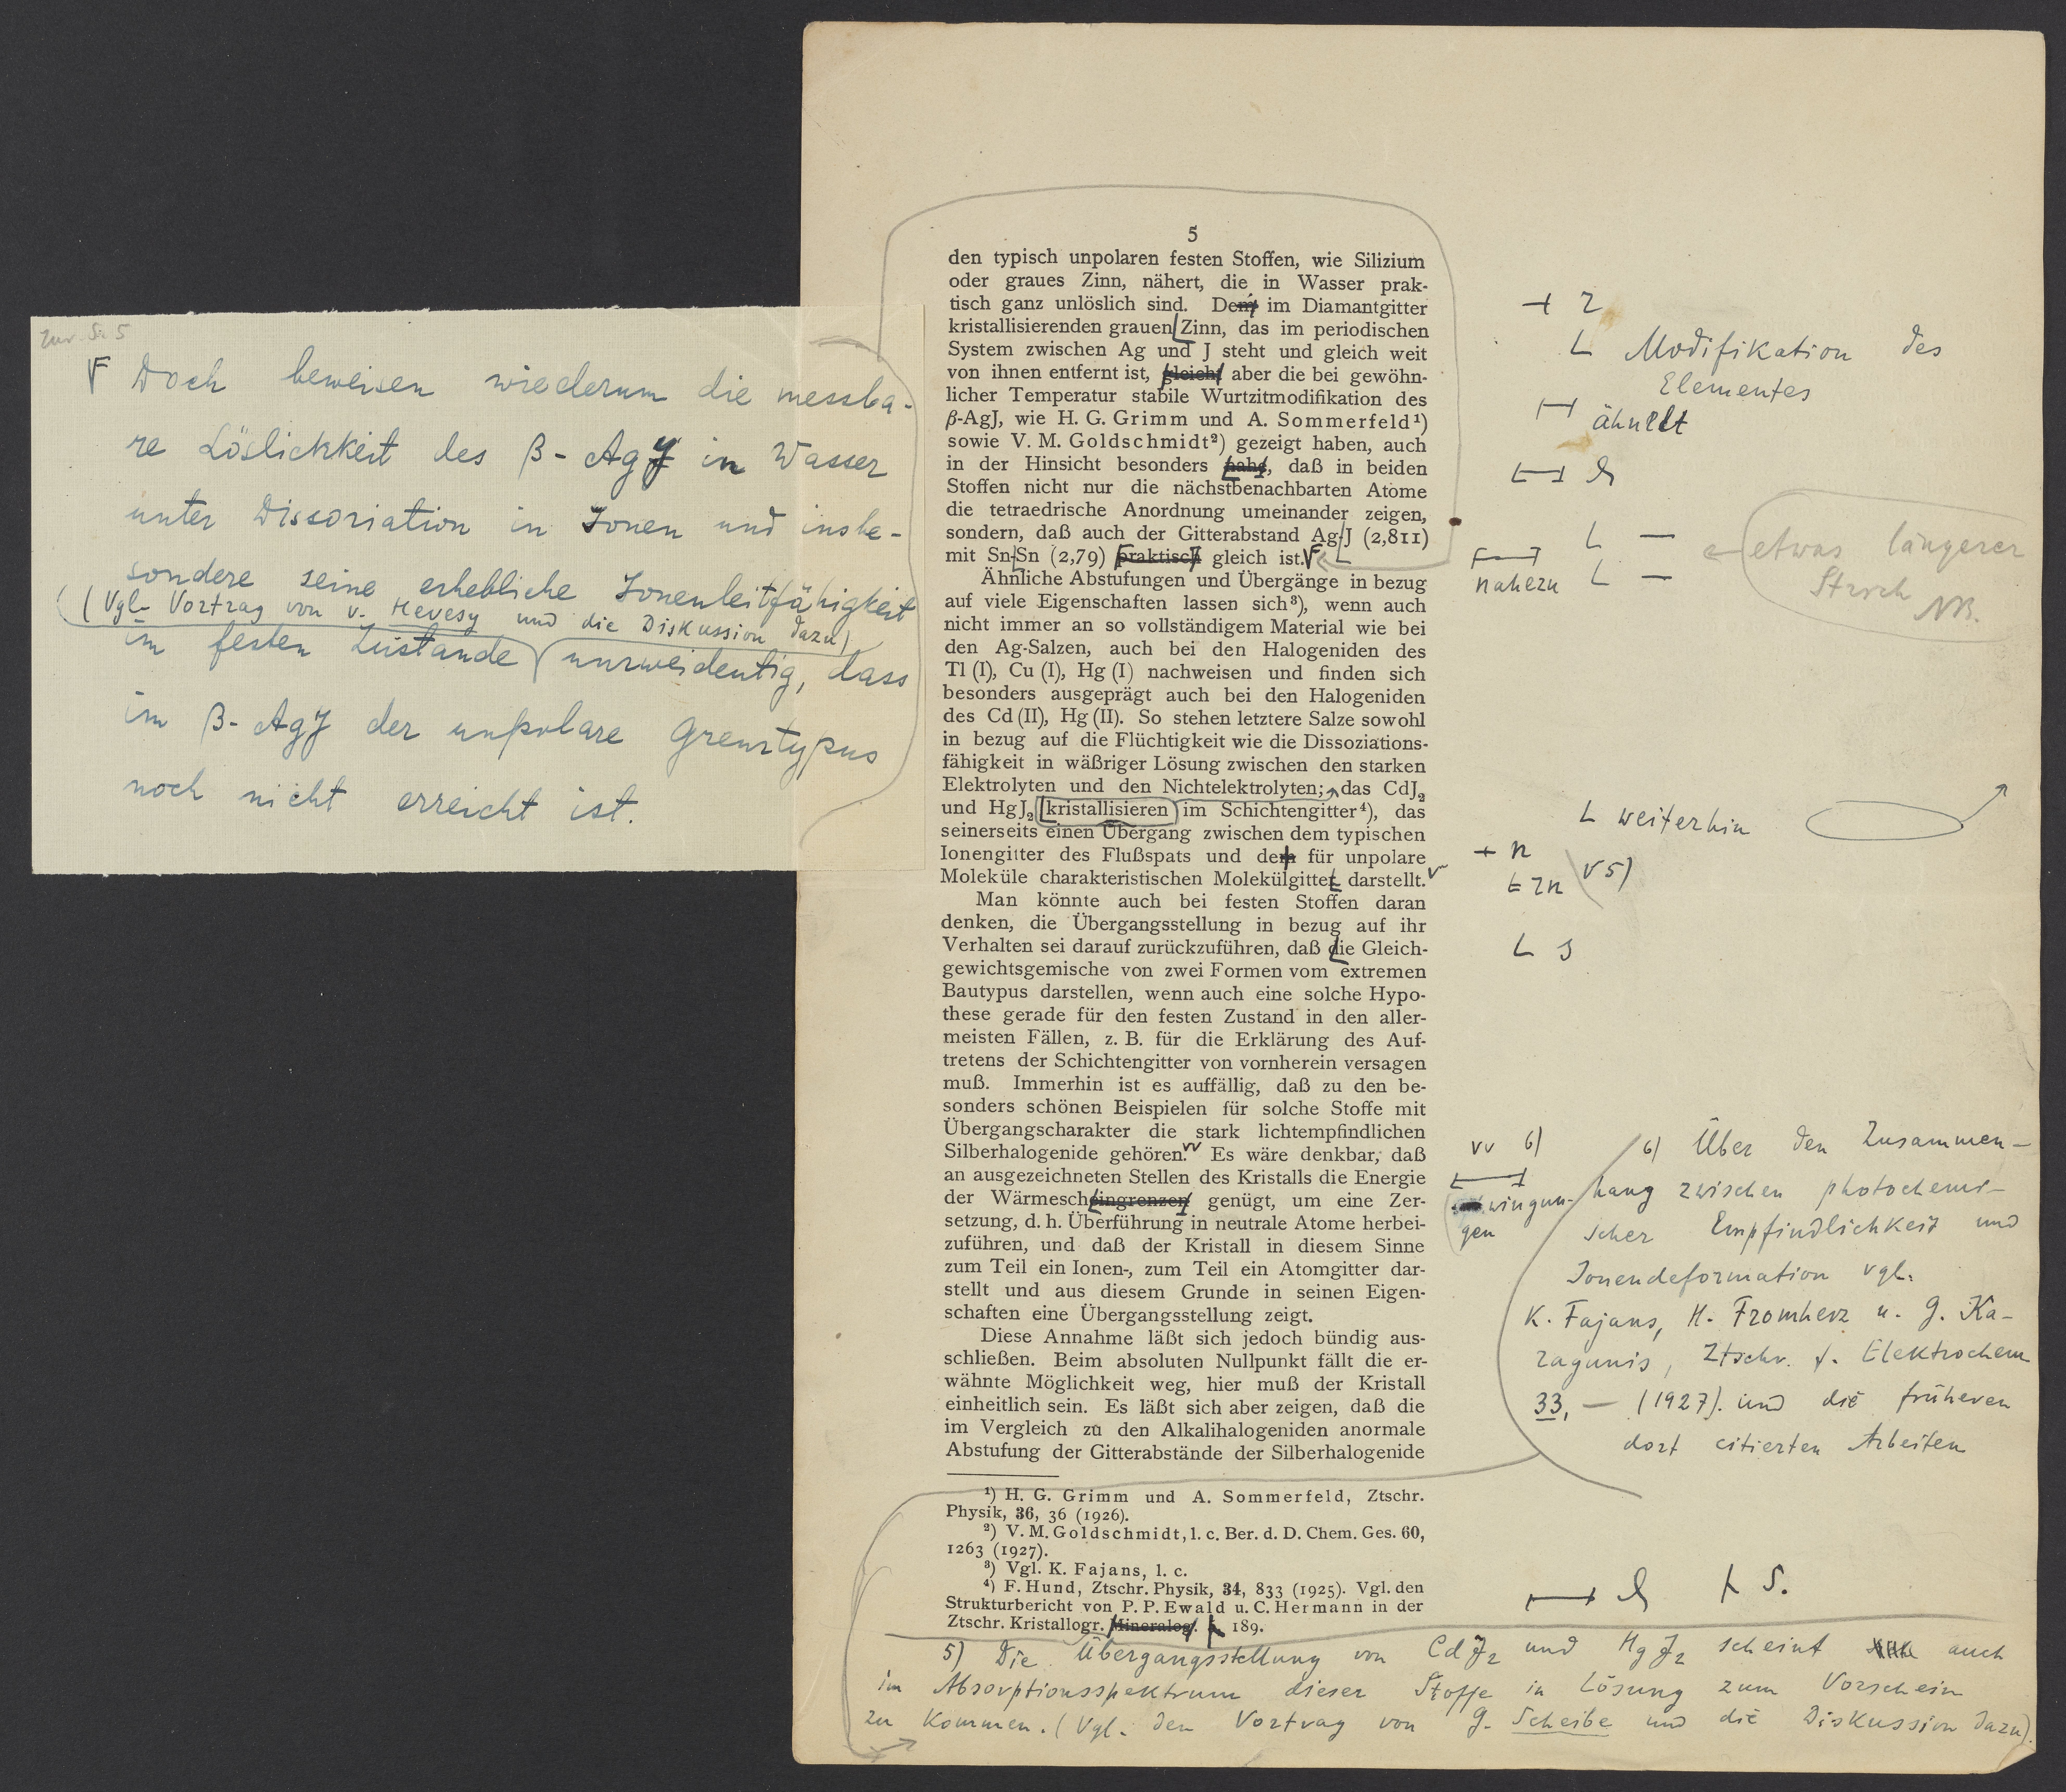 Zur S. 5
Doch beweisen wiederum die messba-
re Löslichkeit des β-AgJ in Wasser
unter Dissociation in Jonen und insbe-
sondere seine erhebliche Jonenleitfähigkeit
(Vgl. Vortrag von v. Hevesy und die Diskussion dazu)
im festen Zustande unzweideutig, dass
im β-AgJ der unpolare Grenztypus
noch nicht erreicht ist.
5
den typisch unpolaren festen Stoffen, wie Silizium
oder graues Zinn, nähert, die in Wasser prak-
tisch ganz unlöslich sind. Dem im Diamantgitter
kristallisierenden grauen Zinn, das im periodischen
System zwischen Ag und J steht und gleich weit
von ihnen entfernt ist, gleicht aber die bei gewöhn-
licher Temperatur stabile Wurtzitmodifikation des
β-AgJ, wie H. G. Grimm und A. Sommerfeld¹)
sowie V. M. Goldschmidt²) gezeigt haben, auch
in der Hinsicht besonders nahe, daß in beiden
Stoffen nicht nur die nächstbenachbarten Atome
die tetraedrische Anordnung umeinander zeigen,
sondern, daß auch der Gitterabstand Ag-J (2,811)
mit Sn-Sn (2,79) praktisch gleich ist.
Ähnliche Abstufungen und Übergänge in bezug
auf viele Eigenschaften lassen sich³), wenn auch
nicht immer an so vollständigem Material wie bei
den Ag-Salzen, auch bei den Halogeniden des
Tl (I), Cu (I), Hg (I) nachweisen und finden sich
besonders ausgeprägt auch bei den Halogeniden
des Cd (II), Hg (II). So stehen letztere Salze sowohl
in bezug auf die Flüchtigkeit wie die Dissoziations-
fähigkeit in wäßriger Lösung zwischen den starken
Elektrolyten und den Nichtelektrolyten; das CdJ₂
und HgJ₂ kristallisieren im Schichtengitter⁴), das
seinerseits einen Übergang zwischen dem typischen
Ionengitter des Flußspats und dem für unpolare
Moleküle charakteristischen Molekülgitter darstellt.
Man könnte auch bei festen Stoffen daran
denken, die Übergangsstellung in bezug auf ihr
Verhalten sei darauf zurückzuführen, daß die Gleich-
gewichtsgemische von zwei Formen vom extremen
Bautypus darstellen, wenn auch eine solche Hypo-
these gerade für den festen Zustand in den aller-
meisten Fällen, z. B. für die Erklärung des Auf-
tretens der Schichtengitter von vornherein versagen
muß. Immerhin ist es auffällig, daß zu den be-
sonders schönen Beispielen für solche Stoffe mit
Übergangscharakter die stark lichtempfindlichen
Silberhalogenide gehören. Es wäre denkbar, daß
an ausgezeichneten Stellen des Kristalls die Energie
der Wärmescheingrenzen genügt, um eine Zer-
setzung, d. h. Überführung in neutrale Atome herbei-
zuführen, und daß der Kristall in diesem Sinne
zum Teil ein Ionen-, zum Teil ein Atomgitter dar-
stellt und aus diesem Grunde in seinen Eigen-
schaften eine Übergangsstellung zeigt.
Diese Annahme läßt sich jedoch bündig aus-
schließen. Beim absoluten Nullpunkt fällt die er-
wähnte Möglichkeit weg, hier muß der Kristall
einheitlich sein. Es läßt sich aber zeigen, daß die
im Vergleich zu den Alkalihalogeniden anormale
Abstufung der Gitterabstände der Silberhalogenide
¹) H. G. Grimm und A. Sommerfeld, Ztschr.
Physik, 36, 36 (1926).
²) V. M. Goldschmidt, l. c. Ber. d. D. Chem. Ges. 60,
1263 (1927).
³) Vgl. K. Fajans, l. c.
⁴) F. Hund, Ztschr. Physik, 34, 833 (1925). Vgl. den
Strukturbericht von P. P. Ewald u. C. Hermann in der
Ztschr. Kristallogr. Mineralog. 189.
5) Die Übergangsstellung von CdJ₂ und HgJ₂ scheint auch
im Absorptionsspektrum dieser Stoffe in Lösung zum Vorschein
zu kommen. (Vgl. den Vortrag von G. Scheibe und die Diskussion dazu).
r
Modifikation des
Elementes
ähnelt
etwas längerer
Strich
NB.
nahezu
weiterhin
n
rn
5)
s
6)
wingun-
gen
6) Über den Zusammen-
hang zwischen photochemi-
scher Empfindlichkeit und
Jonendeformation vgl.
K. Fajans, H. Fromherz u. G. Ka-
ragunis, Ztschr. f. Elektrochem
33, — (1927). und die früheren
dort citierten Arbeiten
S.